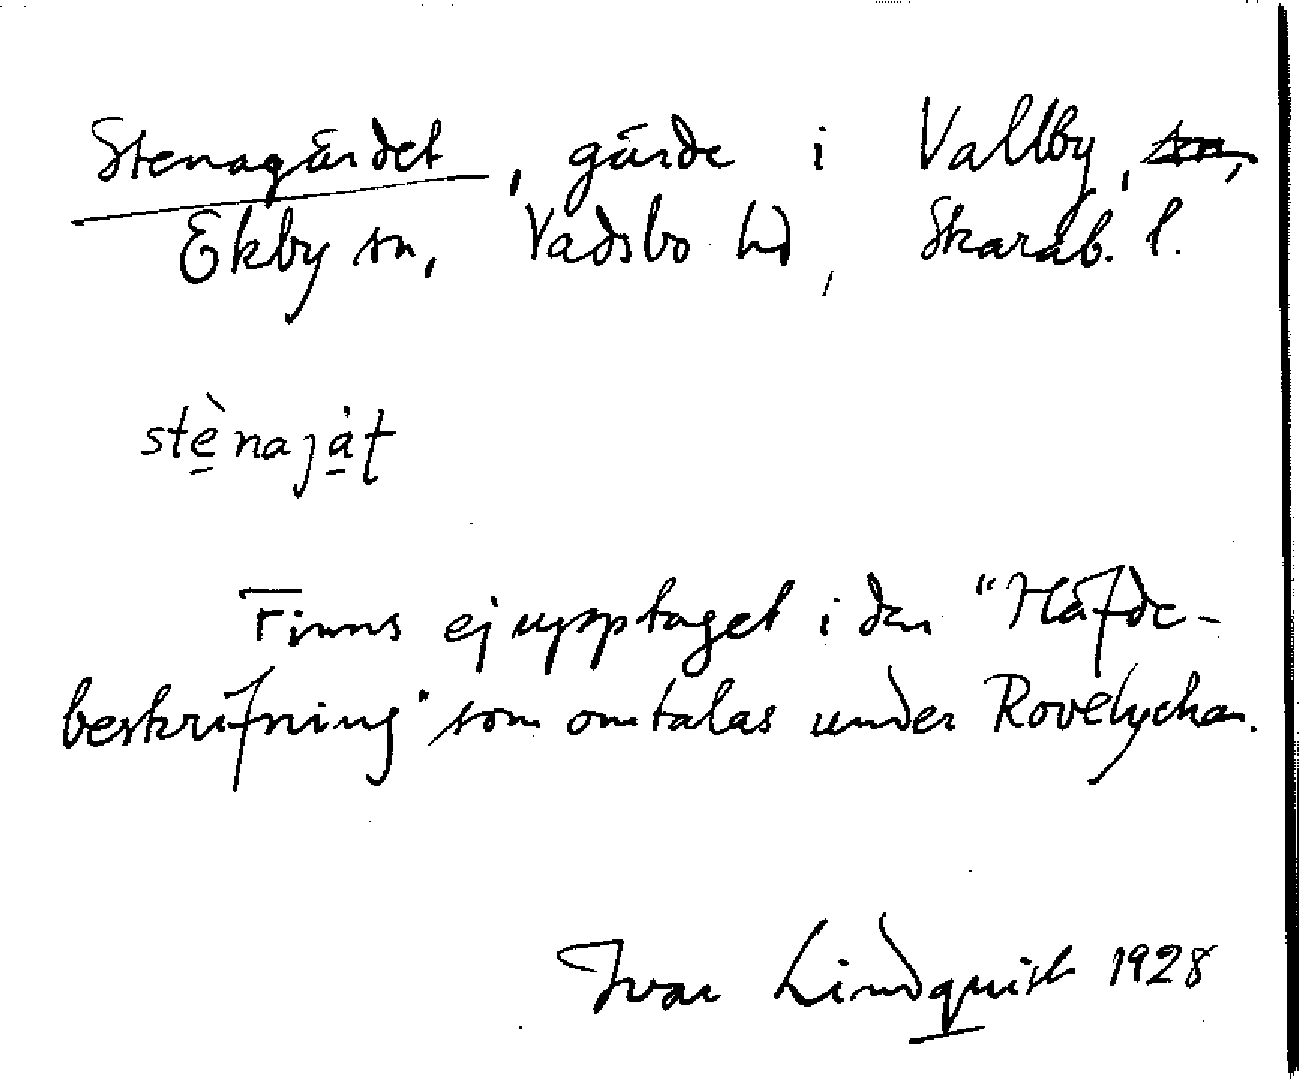 Stenagärdet, gärde i Vallby, sn,
Ekby sn, Vadsbo hd, Skarab. l.
stè̱najȧ̱t
Finns ej upptaget i den "Häfde-
beskrifning" som omtalas under Rovelyckan.
Ivar Lindquist 1928